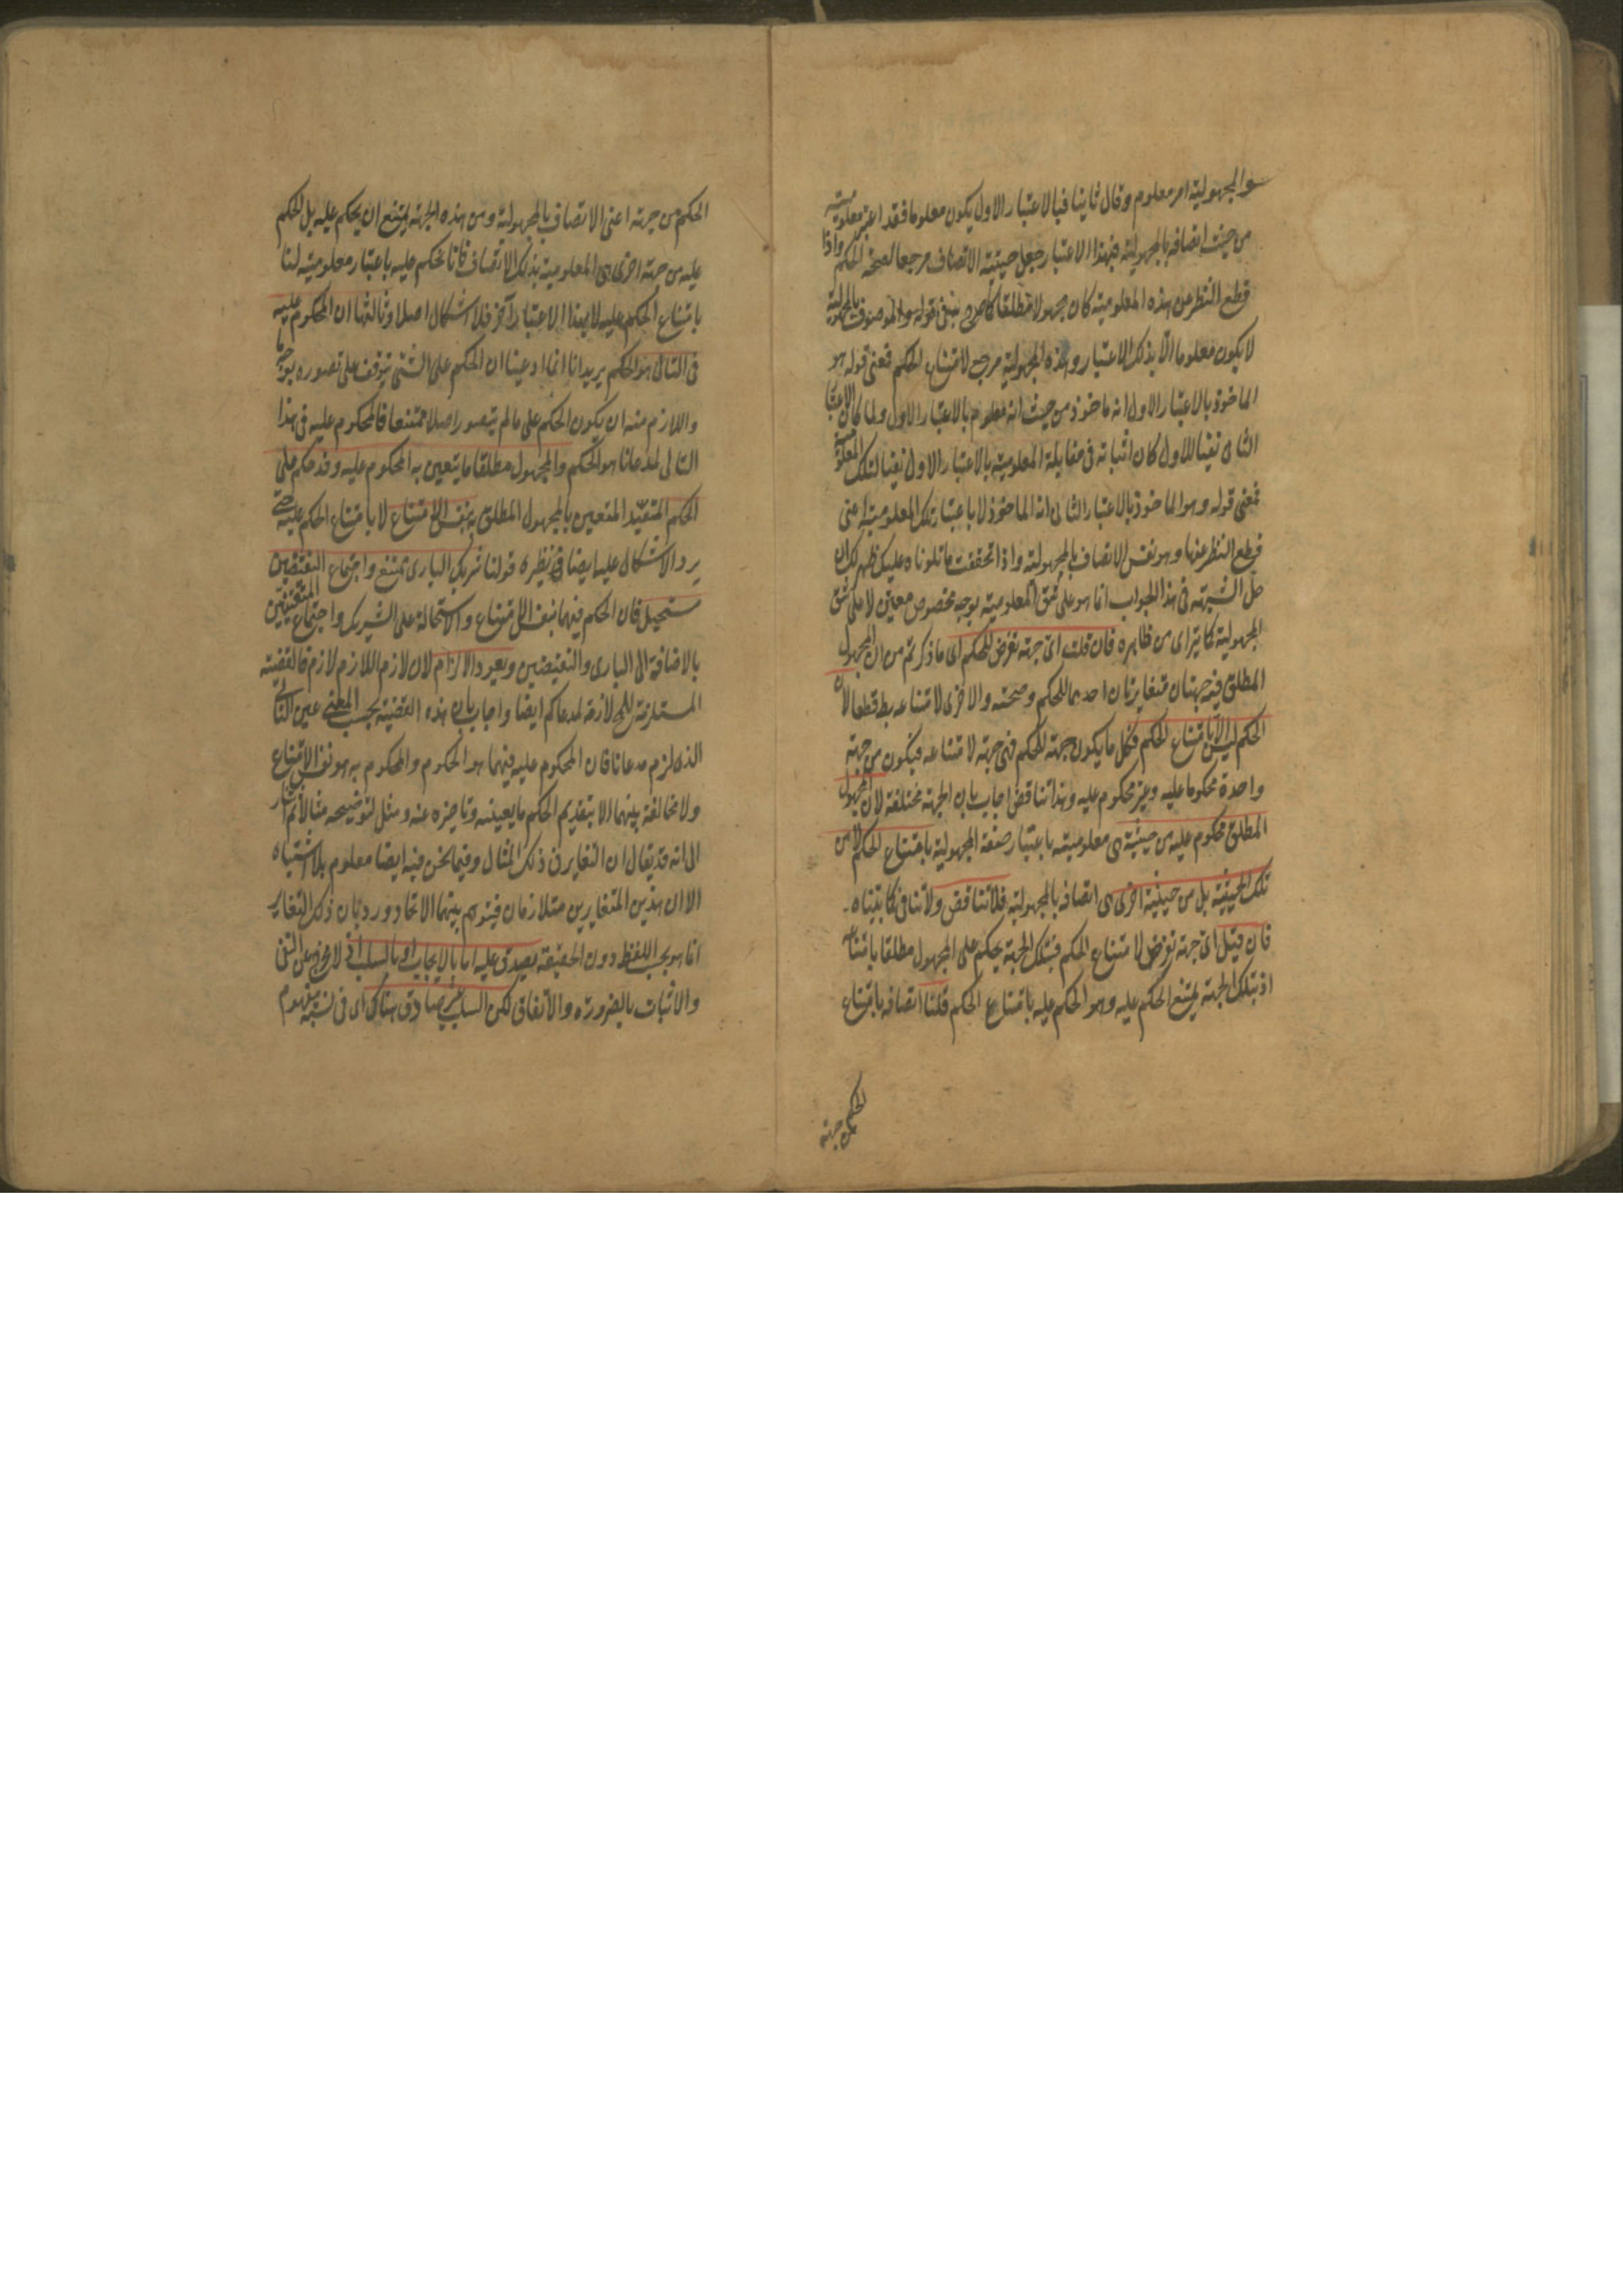 والمجهولية امر معلوم وقال ثانيا فبالاعتبار الاول يكون معلوما فقد اعتبر معلوميته
من حيث اتصافه بالمجهولية فبهذا الاعتبار جعل حيثية الاتصاف مرجعا لصحة الحكم واذا
قطع النظر عن هذه المعلومية كان مجهولا مطلقا كما صرح بنفى قوله والموصوف بالمجهولية
لا يكون معلوما الا بذلك الاعتبار وهذه المجهولية مرجع لامتناع الحكم فمعنى قوله هو
الماخوذ بالاعتبار الاول انه ماخوذ من حيث انه معلوم بالاعتبار الاول ولما كان الاعتبار
الثانى نفيا للاول كان اثباته فى مقابلة المعلومية بالاعتبار الاول نفيا لتلك المعلومية
فمعنى قوله وهو الماخوذ بالاعتبار الثانى انه الماخوذ لا باعتبار تلك المعلومية اعنى
قطع النظر عنها وهو نفس الاتصاف بالمجهولية واذا تحققت ما تلوناه عليك ظهر لك ان
حل الشبهة فى هذا الجواب انما هو على شق المعلومية بوجه مخصوص معين لا على شق
المجهولية كما يتراى من ظاهره فان قلت اى جهة تفرض للحكم اى ما ذكرتم من ان المجهول
المطلق فيه جهتان متغايرتان احدهما للحكم وصحته والاخرى لامتناعه بط قطعا لان
الحكم ليس الا بامتناع الحكم فكل ما يكون جهة للحكم فهى جهة لامتناعه فيكون من جهة
واحدة محكوما عليه وغير محكوم عليه وهذا تناقض اجاب بان الجهة مختلفة لان المجهول
المطلق محكوم عليه من حيثية هى معلوميته باعتبار صفة المجهولية بامتناع الحكم لا من
تلك الحيثية بل من حيثية اخرى هى اتصافه بالمجهولية فلا تناقض ولا تنافى كما بيناه
فان قيل اى جهة تفرض لامتناع الحكم فبتلك الجهة يحكم على المجهول مطلقا بامتناعه
اذ بتلك الجهة يمتنع الحكم عليه وهو الحكم عليه بامتناع الحكم قلنا اتصافه بامتناع
الحكم من جهة
الحكم من جهة اعنى الاتصاف بالمجهولية ومن هذه الجهة يمتنع ان يحكم عليه بل الحكم
عليه من جهة اخرى هى المعلومية بذلك الاتصاف فانا نحكم عليه باعتبار معلوميته لنا
بامتناع الحكم عليه لا بهذا الاعتبار آخر فلا اشكال اصلا وثالثها ان المحكوم عليه
فى التالى هو الحكم يريد انا انما ادعينا ان الحكم على الشئ يتوقف على تصوره بوجه ما
واللازم منه ان يكون الحكم على ما لم يتصور اصلا ممتنعا فالمحكوم عليه فى هذا
التالى لمدعانا هو الحكم والمجهول مطلقا ما يتعين به المحكوم عليه وقد حكم على
الحكم المتقيد المتعين بالمجهول المطلق به بنفس الامتناع لا بامتناع الحكم عليه حتى
يرد الاشكال عليه ايضا فى نظيره قولنا شريك البارى ممتنع واجتماع النقيضين
مستحيل فان الحكم فيهما بنفس الامتناع والاستحالة على الشريك واجتماع المتعينين
بالاضافة الى البارى والنقيضين ويعود الالزام لان لازم اللازم لازم فالقضية
المستلزمة للمح لازمة لمدعاكم ايضا واجاب بان هذه القضية بحسب المعنى عين التالى
الذى لزم مدعانا فان المحكوم عليه فيهما هو الحكم والمحكوم به هو نفس الامتناع
ولا مخالفة بينهما الا بتقديم الحكم ما يعينه وتاخيره عنه ومثل لتوضيحه مثالا ثم اشار
الى انه قد يقال ان التغاير فى ذلك المثال وفيما نحن فيه ايضا معلوم بلا اشتباه
الا ان هذين المتغايرين متلازمان فيتوهم بينهما الاتحاد ورد بان ذلك التغاير
انما هو بحسب اللفظ دون الحقيقة يصدق عليه اما بالايجاب او بالسلب اذ لا مخرج عن النفى
والاثبات بالضرورة والاتفاق لكن السلب غير صادق هناك اى فى نسبة مفهوم